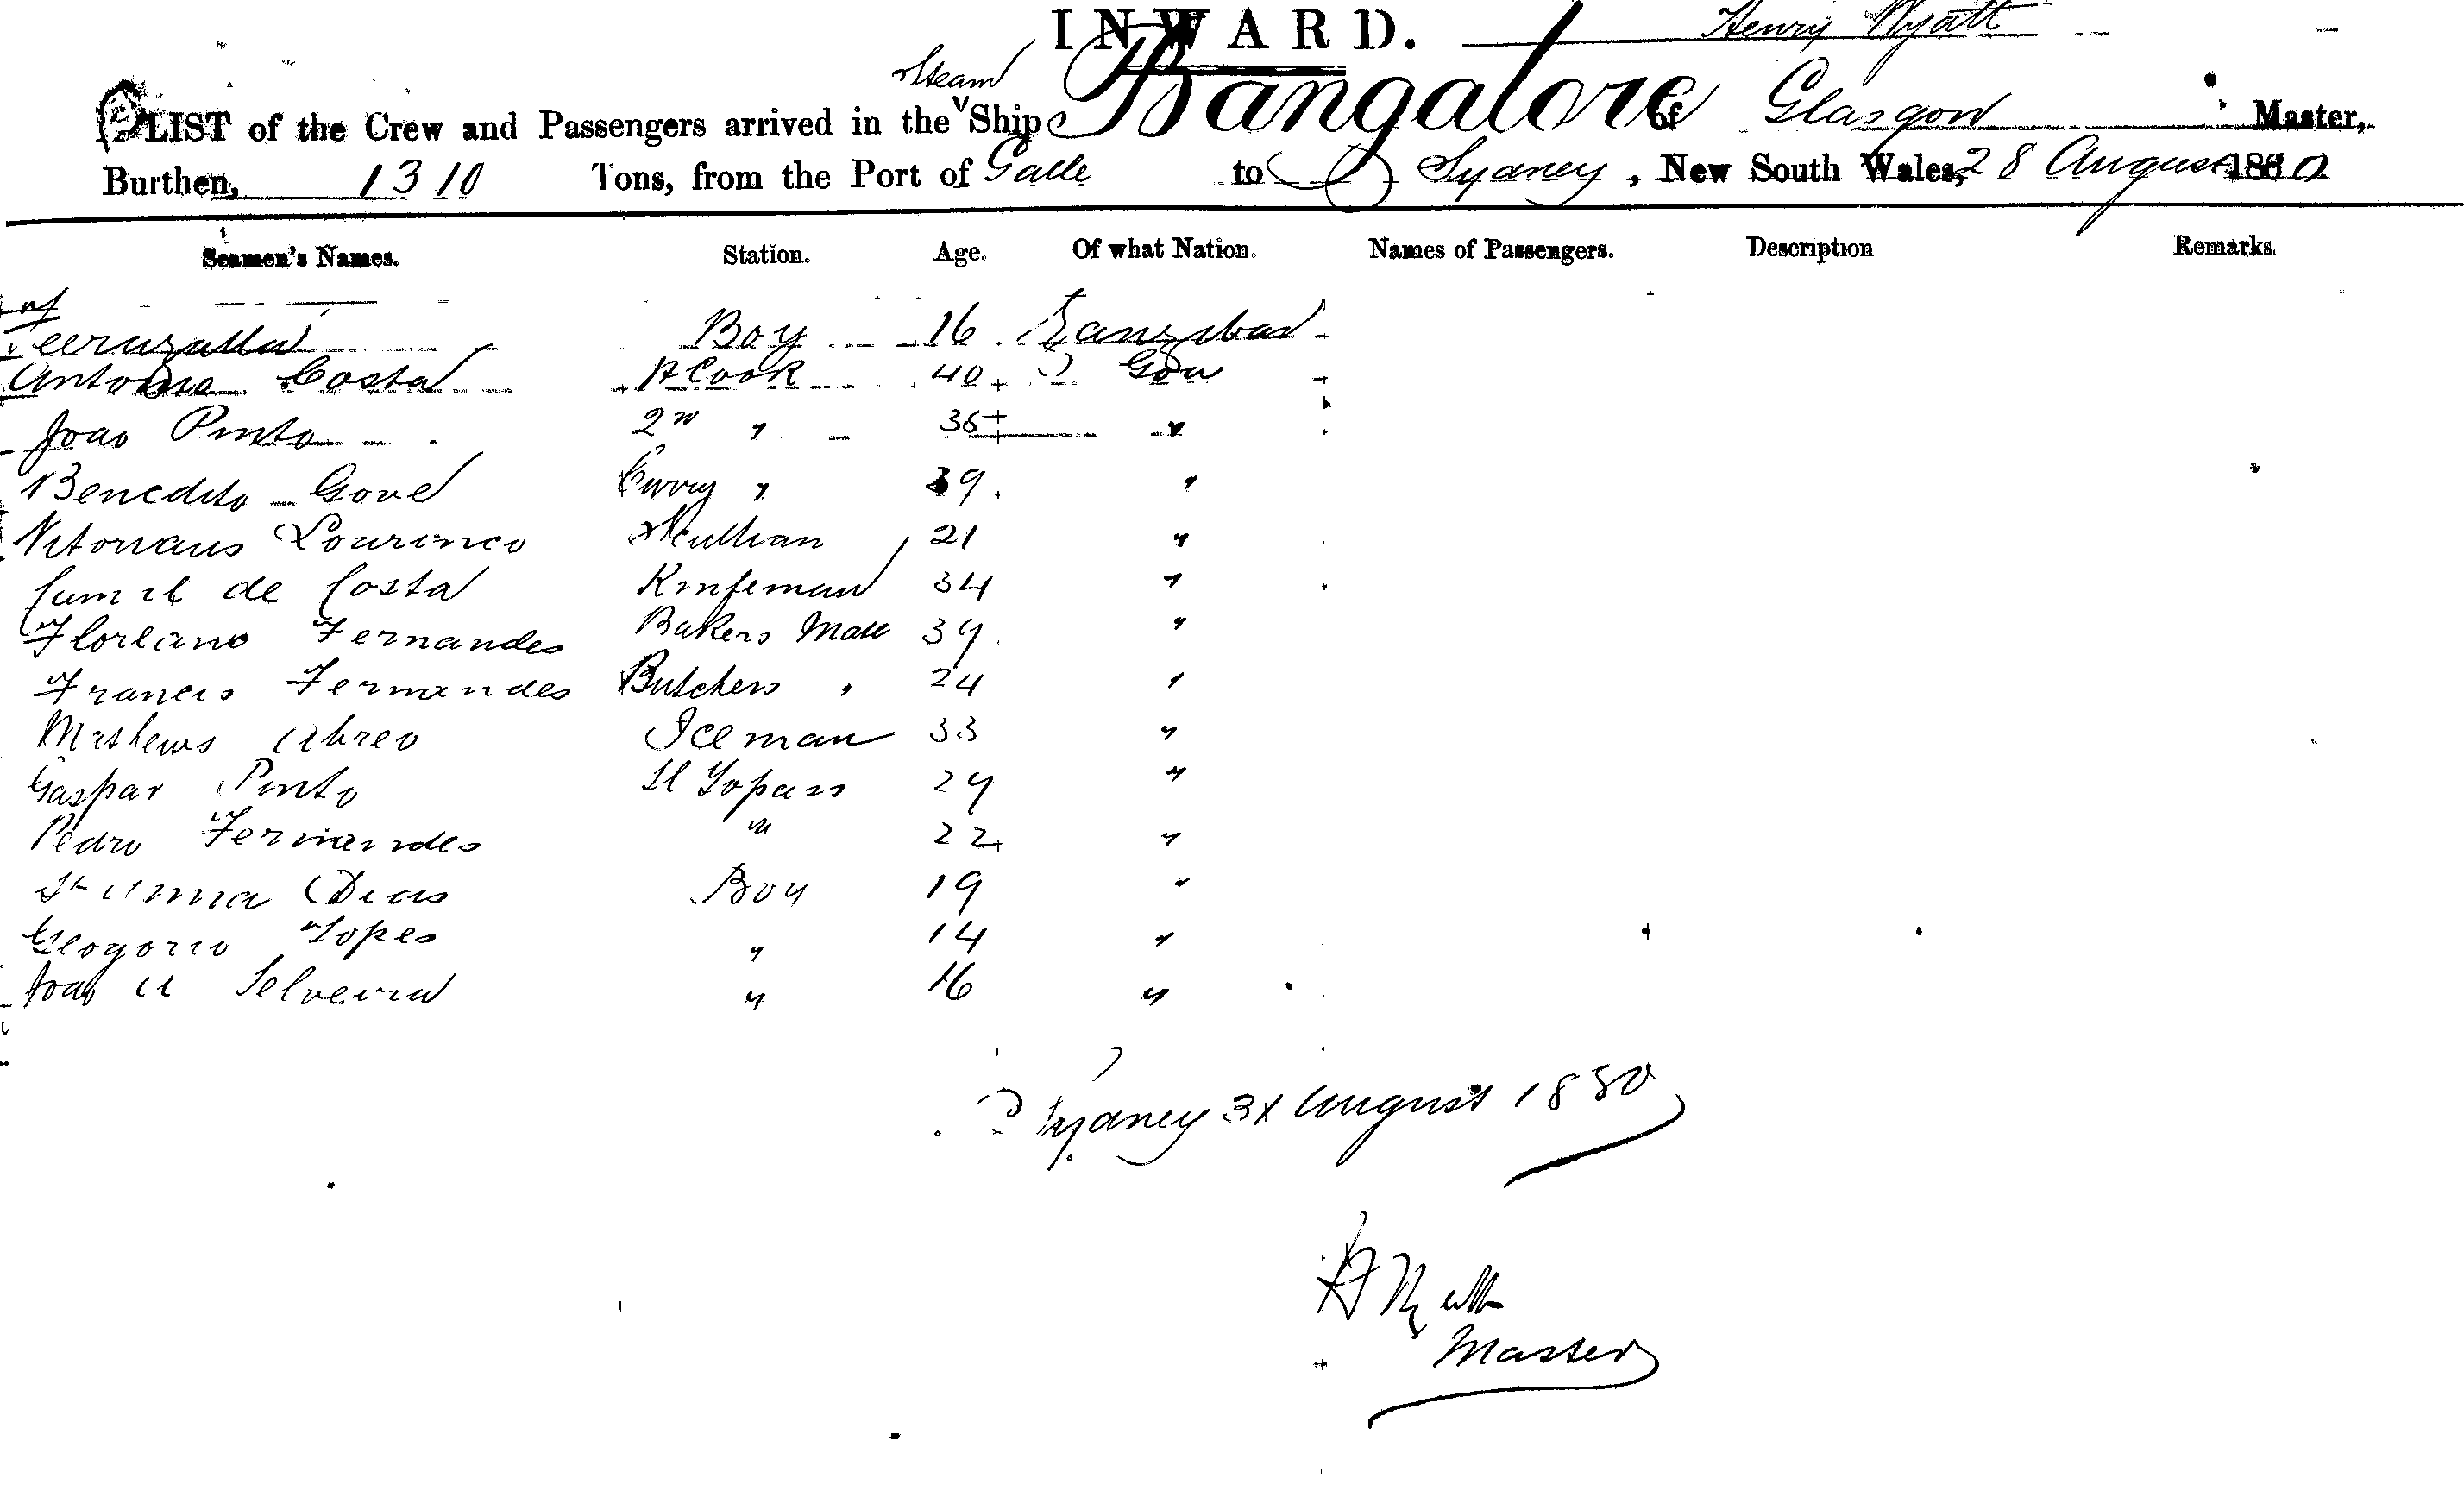 INWARD. Henry Wyatt
LIST of the Crew and Passengers arrived in the Steam Ship Bangalore of Glasgow Master,
Burthen, 1310 Tons, from the Port of Galle to Sydney, New South Wales, 28 August 1880
Seamen's Names. Station. Age. Of what Nation. Names of Passengers. Description Remarks.
Boy 16 Zanzibar
Antonio Costa Cook 40 Goa
Joao Pinto 2nd " 36 "
Benedito Curry " 39. "
Lourenco 21 "
de Costa 34 "
Floriano Fernandes Bakers Mate 39. "
Francis Fernandes Butchers " 24 "
Mathews Abreo Iceman 33 "
Gaspar Pinto Topass 29 "
Pedro Fernandes " 22 "
Dias Boy 19 "
Lopes " 14 "
Joao " 16 "
Sydney 31 August 1880
H Wyatt
Master